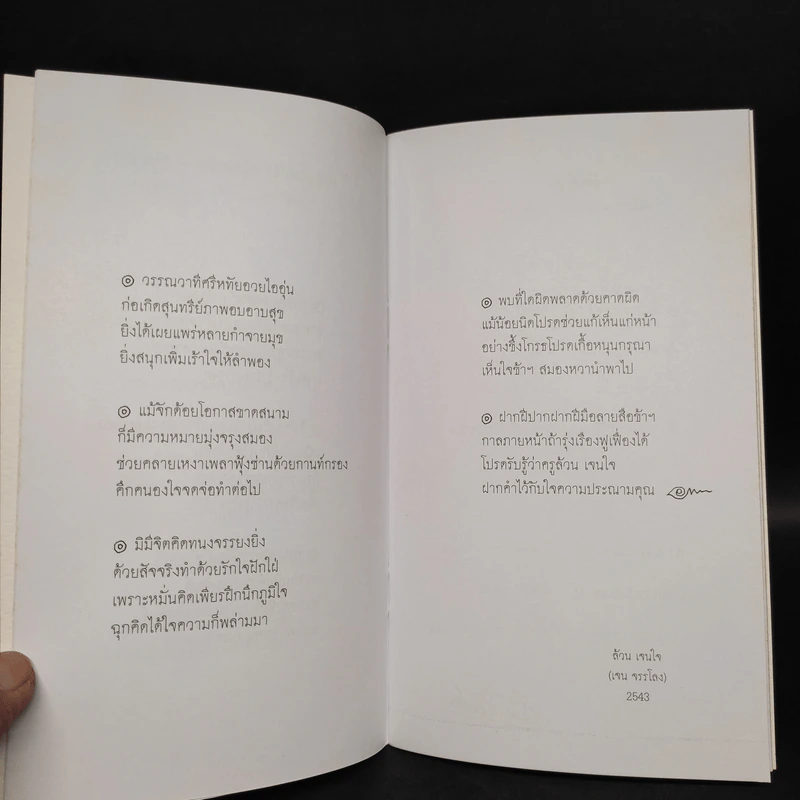 ๏ วรรณวาทีศรีหทัยอวยไออุ่น
ก่อเกิดสุนทรีย์ภาพอบอาบสุข
ยิ่งได้เผยแพร่หลายกำจายมุข
ยิ่งสนุกเพิ่มเร้าใจให้ลำพอง
๏ แม้จักด้อยโอกาสขาดสนาม
ก็มีความหมายมุ่งจรุงสมอง
ช่วยคลายเหงาเพลาฟุ้งซ่านด้วยกานท์กรอง
คึกคนองใจจดจ่อทำต่อไป
๏ มิมีจิตคิดทนงจรรยงยิ่ง
ด้วยสัจจริงทำด้วยรักใจฝักใฝ่
เพราะหมั่นคิดเพียรฝึกนึกภูมิใจ
ฉุกคิดได้ใจความก็พล่ามมา
๏ พบที่ใดผิดพลาดด้วยคาดผิด
แม้น้อยนิดโปรดช่วยแก้เห็นแก่หน้า
อย่างขึ้งโกรธโปรดเกื้อหนุนกรุณา
เห็นใจข้าฯ สมองหวานำพาไป
๏ ฝากฝีปากฝากฝีมือลายสือข้าฯ
กาลภายหน้าถ้ารุ่งเรืองฟูเฟื่องได้
โปรดรับรู้ว่าครูล้วน เจนใจ
ฝากคำไว้กับใจความประณามคุณ ๛
ล้วน เจนใจ
(เจน จรรโลง)
2543